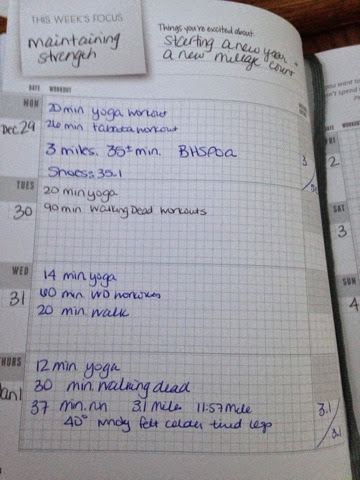 THIS WEEK'S FOCUS
maintaining
strength
Things you're excited about:
starting a new year +
a new mileage count
DATE WORKOUT
MON
Dec 29
20 min yoga workout
26 min tabata workout
3 miles. 35+ min. BHSPOA
Shoes: 35.1
3
TUES
30
20 min yoga
90 min Walking Dead workouts
WED
31
14 min yoga
60 min WD workouts
20 min walk
THURS
Jan 1
12 min yoga
30 min walking dead
37 min. run 3.1 mile 11:57 mile
40° windy felt colder tired legs
3.1
3.1
2
SAT
3
SUN
4